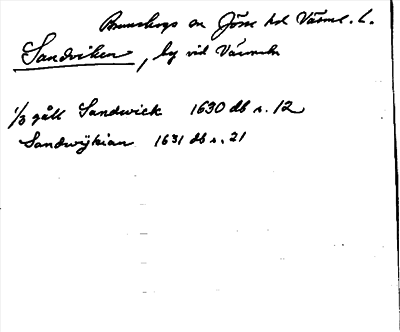 Brunskogs sn Jösse hd Värml. l.
Sandviken, by vid Värmeln
1/3 gålt Sandwick 1630 db s. 12
Sandwijkian 1631 db s. 21